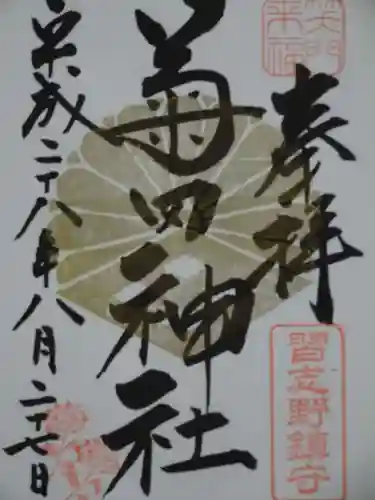 笑門
来福
奉祥
習志野鎮守
菊田神社
平成二十八年八月二十七日